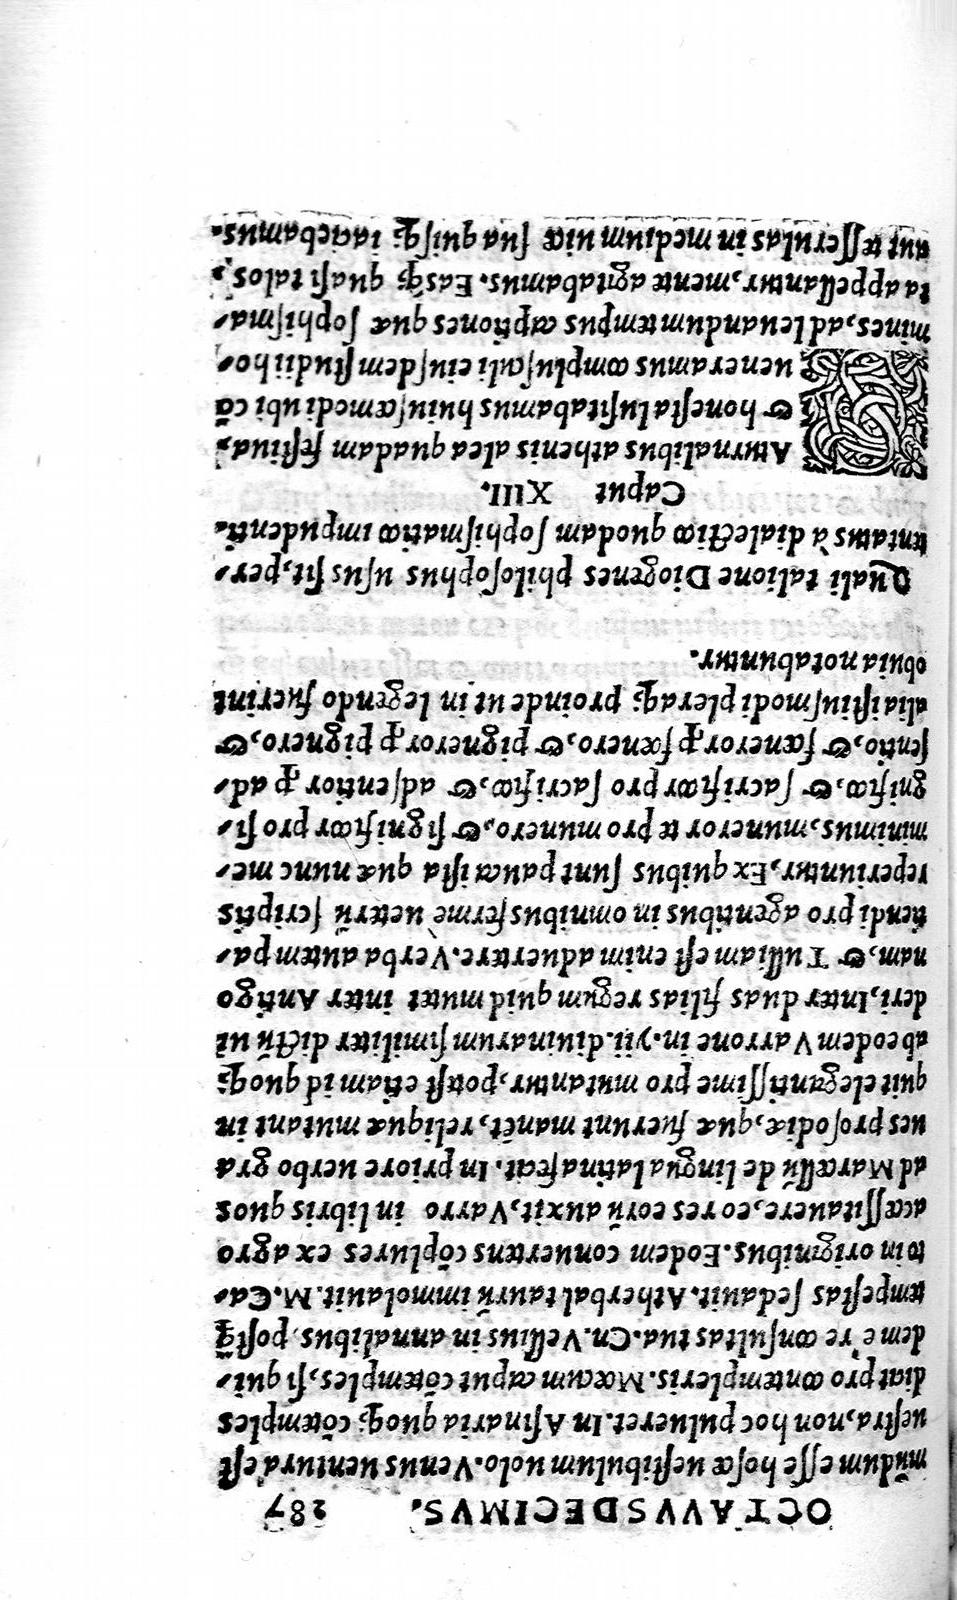 OCTAVVSDECIMVS. 287
mūdum esse hosce uestibulum uolo. Venus uentura est
uestra, non hoc pulueret. In Asinaria quoq; cōtemples
diat pro contempleris. Meceum caput cōtemples, si qui-
deme re consultas tua. Cn. Vellius in annalibus, postq̄
tempestas sedauit. Atherbal taurū immolauit. M. Ca-
to in originibus. Eodem conuenæus cōplures ex agro
accessitauere, eo res eorū auxit, Varro in libris quos
ad Marcellū de lingua latina fecit. In priore uerbo gra
ues prosodiæ, quæ fuerunt manēt, reliquæ mutant in
quit elegantissime pro mutantur, potest etiam id quoq;
ab eodem Varrone in .yii. diuinarum similiter dictū ui
deri, Inter duas filias regum quid mutet inter Antigo
nam, & Tulliam est enim aduertere. Verba autem pa-
tiendi pro agentibus in omnibus ferme ueterū scriptis
reperiuntur, Ex quibus sunt pauca ista quæ nunc me-
minimus, muneror te pro munero, & significor pro si-
gnifico, & sacrificor pro sacrifico, & adsentior ꝓ ad-
sentio, & fœneror ꝓ fœnero, & pigneror ꝓ pignero, &
alia istiusmodi pleraq; proinde ut in legendo fuerint
obuia notabuntur.
Quali talione Diogenes philosophus usus sit, per-
tentatus à dialectico quodam sophismatico impudenti.
Caput XIII.
Aturnalibus athenis alea quadam festiua,
& honesta lusitabamus huiuscemodi ubi cō
ueneramus complusculi eiusdem studii ho-
mines, ad leuandum tempus captiones quæ sophisma-
ta appellantur, mente agitabamus. Easq; quasi talos,
aut tesserulas in medium uice sua quisq; iaciebamus.